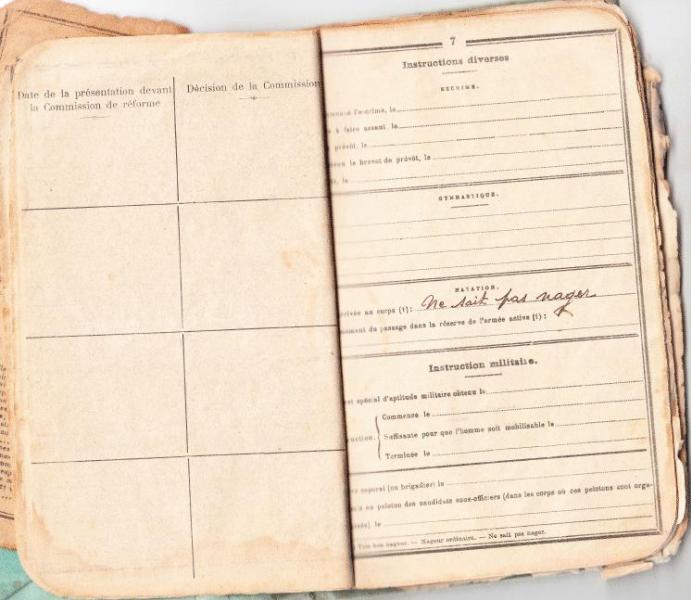 Date de la présentation devant
la Commission de réforme
Décision de la Commission
7
Instructions diverses
ESCRIME.
l'escrime, le
à faire assaut, le
prévôt, le
le brevet de prévôt, le
le
GYMNASTIQUE.
NATATION.
arrivée au corps (1): Ne sait pas nager
du passage dans la réserve de l'armée active (1):
Instruction militaire.
spécial d'aptitude militaire obtenu le
Commencé le
Suffisante pour que l'homme soit mobilisable le
Terminée le
caporal (ou brigadier) le
au peloton des candidats sous-officiers (dans les corps où ces pelotons sont orga-
le
Très bon nageur. — Nageur ordinaire. — Ne sait pas nager.